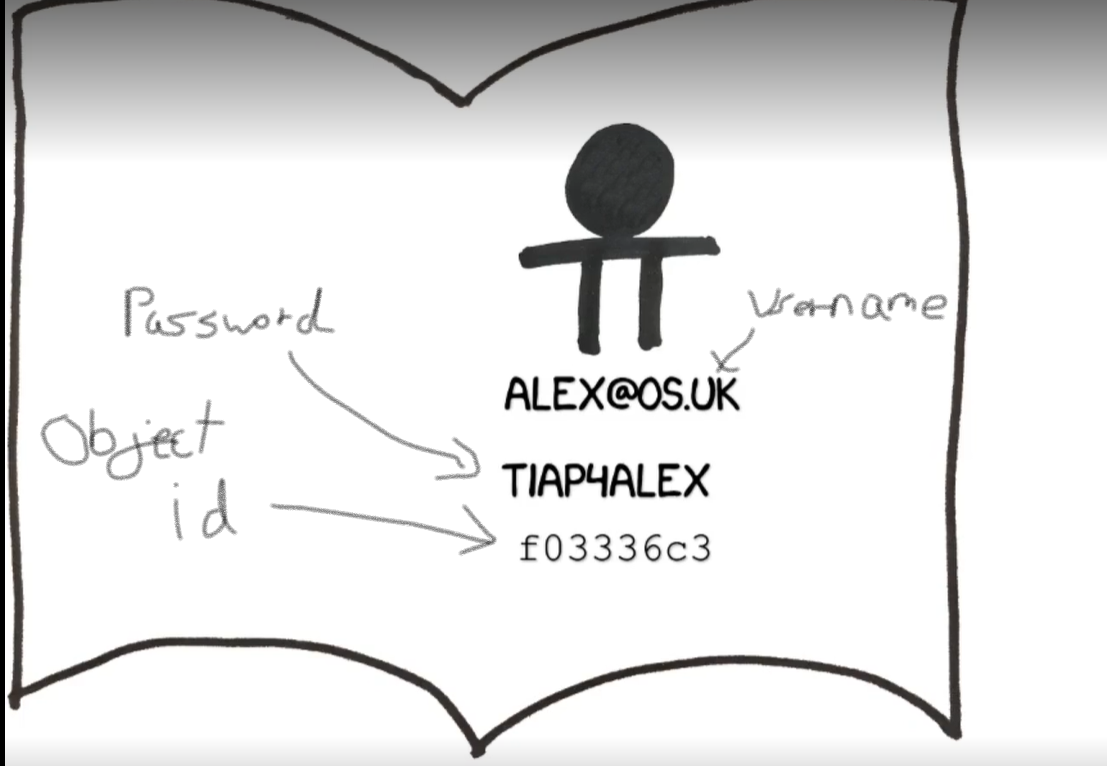 Password
Username
ALEX@OS.UK
Object
id
TIAP4ALEX
f03336c3